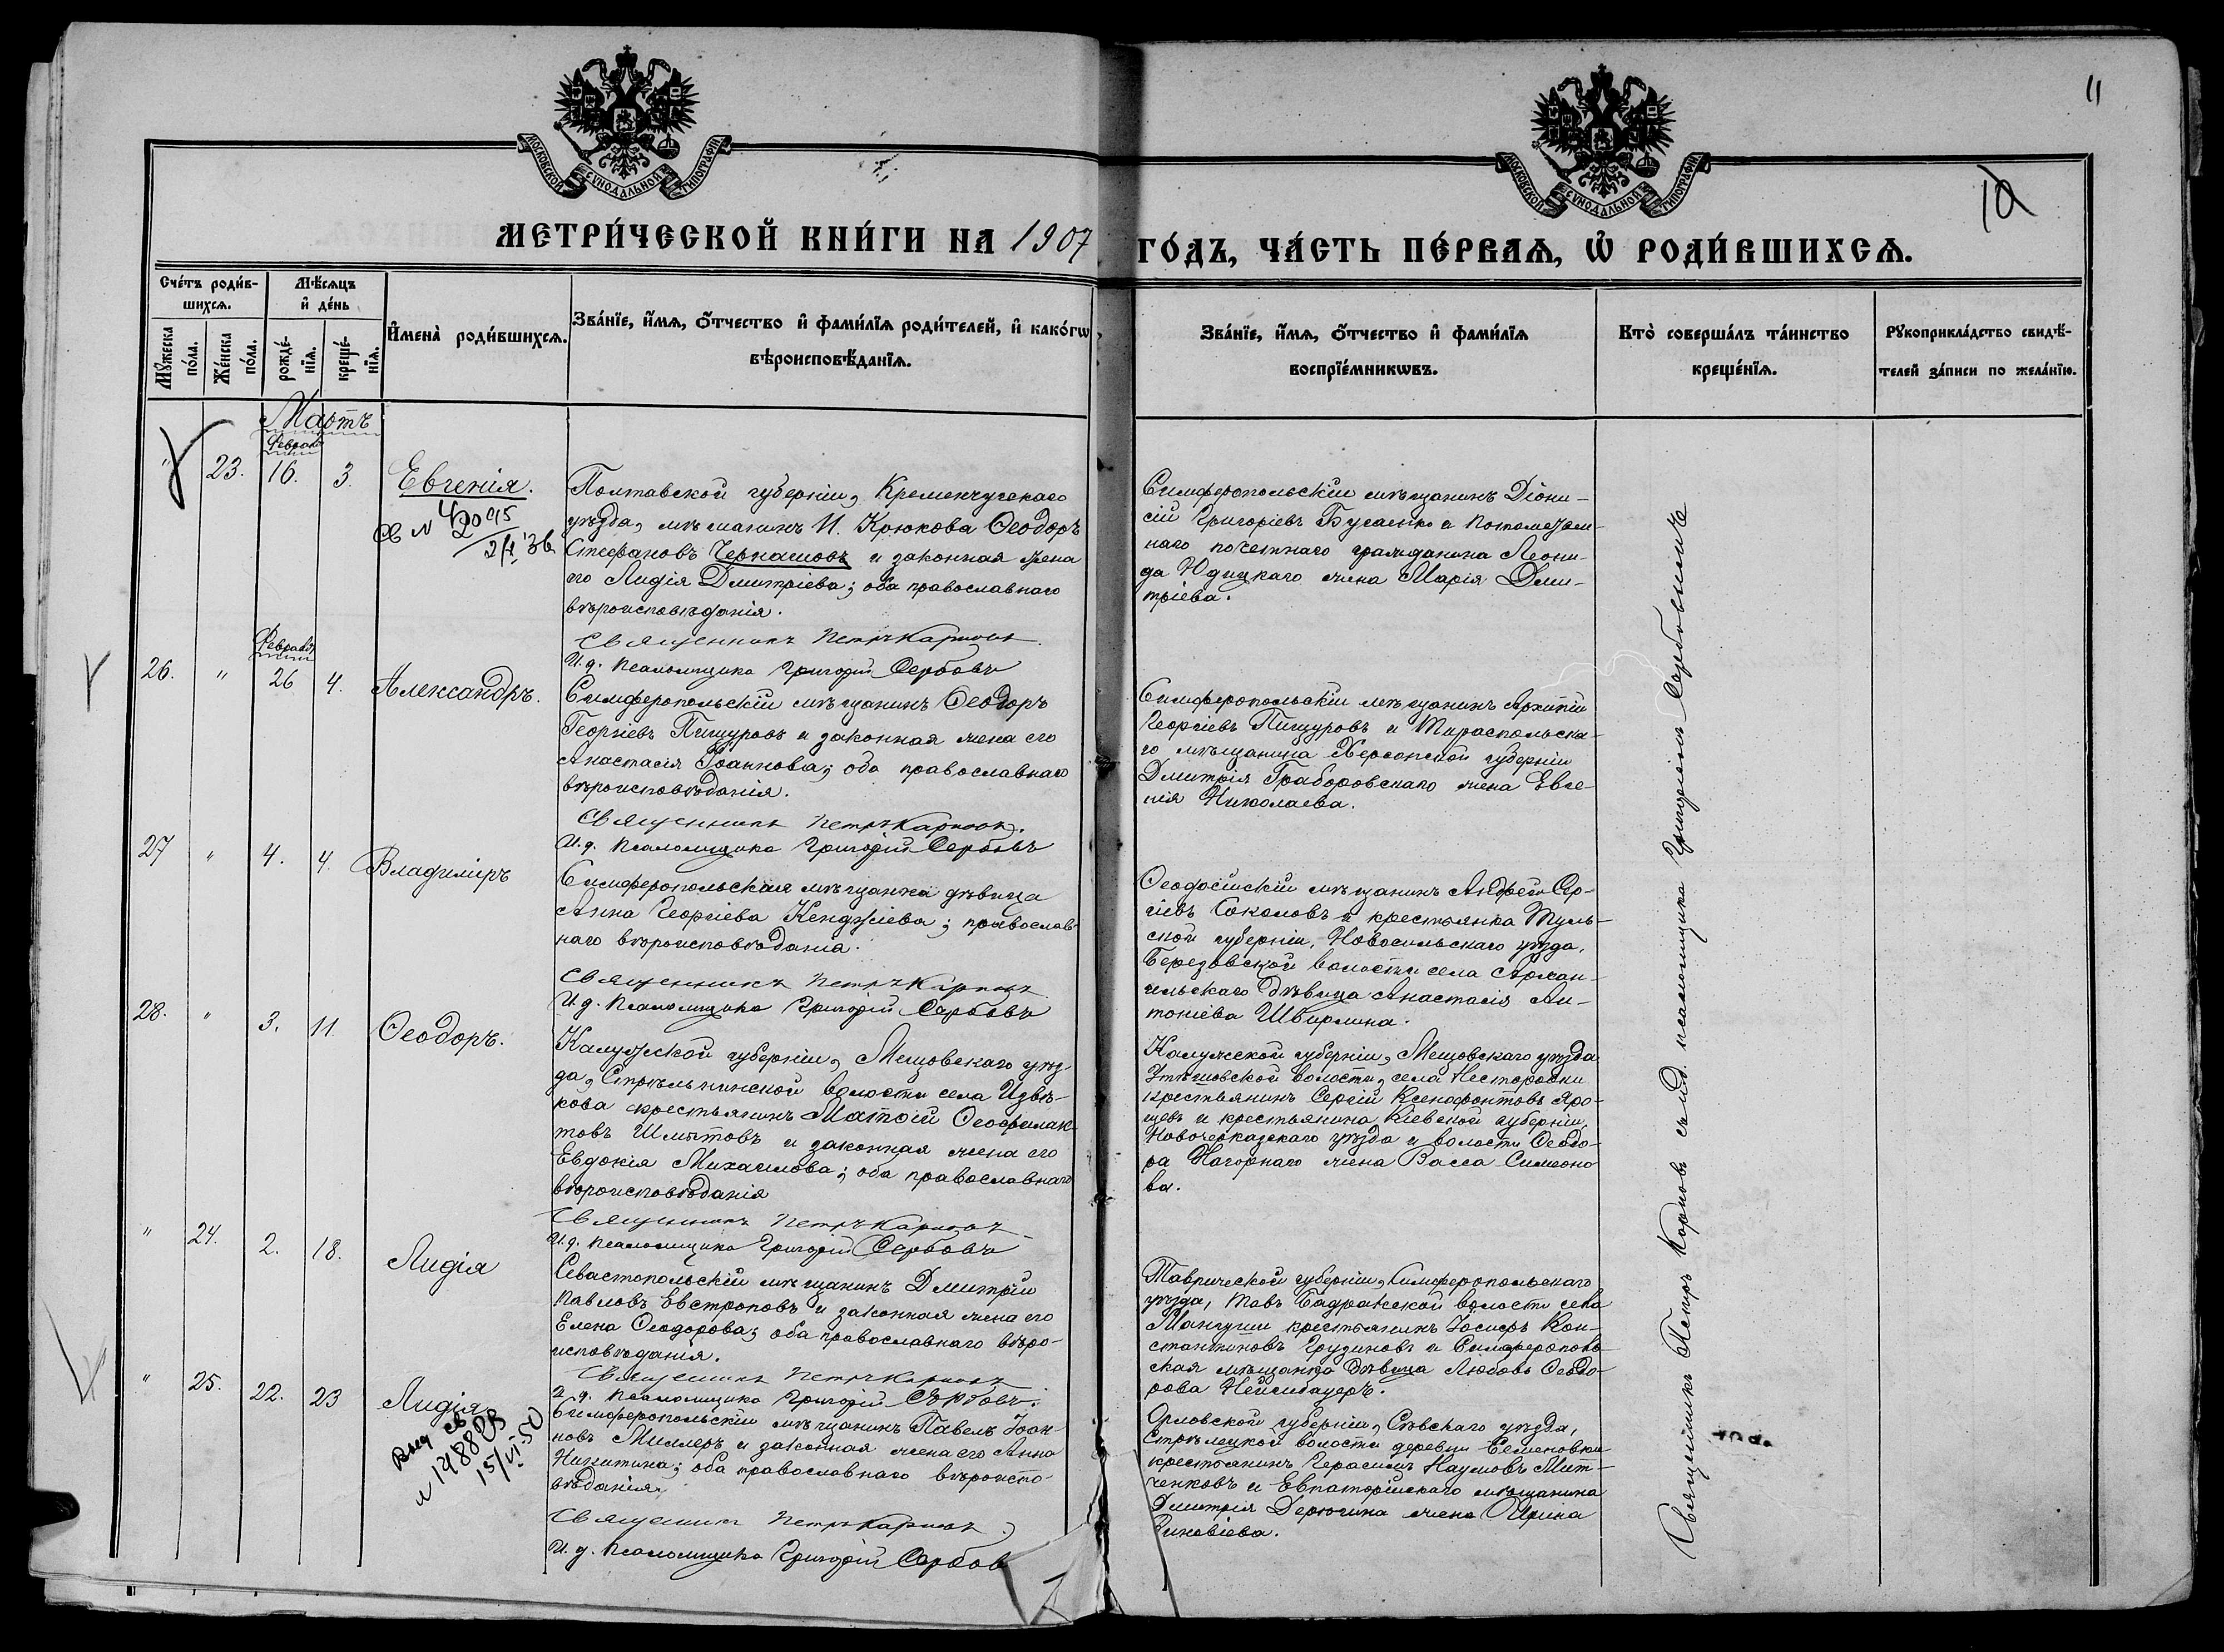 МОСКОВСКОЙ СѴНОДАЛЬНОЙ ТИПОГРАФІИ
МОСКОВСКОЙ СѴНОДАЛЬНОЙ ТИПОГРАФІИ
11
10
МЕТРИ́ЧЕСКОЙ КНИ́ГИ НА 1907
ГО́ДЪ, ЧА́СТЬ ПЕ́РВАѦ, Ѡ҆ РОДИ́ВШИХСѦ.
Сче́тъ роди́в-
шихсѧ.
Мѣ́сѧцъ
и҆ де́нь
Мꙋ́жеска
по́ла.
Же́нска
по́ла.
рожде́-
нїѧ.
креще́-
нїѧ.
И҆мена̀ роди́вшихсѧ.
Зва́нїе, и҆́мѧ, ѻ҆́тчество и҆ фами́лїѧ роди́телей, и҆ како́гѡ
вѣроисповѣ́данїѧ.
Зва́нїе, и҆́мѧ, ѻ҆́тчество и҆ фами́лїѧ
воспрїе́мникѡвъ.
Кто̀ соверша́лъ та́инство
креще́нїѧ.
Рꙋкоприкла́дство свидѣ́-
телей за́писи по жела́нїю.
Мартъ
Февраля
" 23. 16. 3. Евгенія.
2/X 36
Полтавской губерніи, Кременчугскаго
уѣзда, мѣщанинъ П. Крюкова Ѳеодоръ
Стефановъ Чернашовъ и законная жена
его Лидія Дмитріева; оба православнаго
вѣроисповѣданія.
Священникъ Петръ Карповъ
И. д. Псаломщика Григорій Сербовъ
Симферопольскій мѣщанинъ Діони-
сій Григоріевъ Бусаенко и потомствен-
наго почетнаго гражданина Леони-
да Юдицкаго жена Марія Дми-
тріева.
Февраля
26. " 26 4. Александръ.
Симферопольскій мѣщанинъ Ѳеодоръ
Георгіевъ Пищуровъ и законная жена его
Анастасія Іоаннова; оба православнаго
вѣроисповѣданія.
Священникъ Петръ Карповъ.
И. д. Псаломщика Григорій Сербовъ
Симферопольскій мѣщанинъ Архипъ
Георгіевъ Пищуровъ и Тираспольска-
го мѣщанина Херсонской губерніи
Дмитрія Граборовскаго жена Евге-
нія Николаева.
27 " 4. 4. Владиміръ
Симферопольская мѣщанка дѣвица
Анна Георгіева Кенджіева; православ-
наго вѣроисповѣданія.
Священникъ Петръ Карповъ
И. д. Псаломщика Григорій Сербовъ
Ѳеодосійскій мѣщанинъ Андрей Сер-
гіевъ Соколовъ и крестьянка Туль-
ской губерніи, Новосильскаго уѣзда,
Березовской волости села Архан-
гельскаго дѣвица Анастасія Ан-
тоніева Швырлина.
28. " 3. 11. Ѳеодоръ.
Калужской губерніи, Мещовскаго уѣз-
да, Стрѣльнинской волости села Извѣ-
кова крестьянинъ Матѳій Ѳеофилак-
товъ Шмытовъ и законная жена его
Евдокія Михаилова; оба православнаго
вѣроисповѣданія
Священникъ Петръ Карповъ
И. д. Псаломщика Григорій Сербовъ
Калужской губерніи, Мещовскаго уѣзда
Утѣшовской волости, села Несторовки
крестьянинъ Сергій Ксенофонтовъ Яро-
щевъ и крестьянина Кіевской губерніи,
Новочерказскаго уѣзда и волости Ѳеодо-
ра Нагорнаго жена Васса Симеоно
ва.
" 24. 2. 18. Лидія
Севастопольскій мѣщанинъ Дмитрій
Павловъ Евстроповъ и законная жена его
Елена Ѳеодорова; оба православнаго вѣро-
исповѣданія.
Священникъ Петръ Карповъ
И. д. Псаломщика Григорій Сербовъ.
Таврической губерніи, Симферопольскаго
уѣзда, Тавъ Бадракской волости села
Мангушъ крестьянинъ Іосифъ Кон-
стантиновъ Грузиновъ и Симферополь-
ская мѣщанка дѣвица Любовь Ѳеодо-
рова Неймбауеръ.
" 25. 22. 23 Лидія
Выд св
N 148828
15/VI-50
Симферопольскій мѣщанинъ Павелъ Іоан-
новъ Миллеръ и законная жена его Анна
Никитина; оба православнаго вѣроиспо-
вѣданія.
Священникъ Петръ Карповъ
И. д. Псаломщика Григорій Сербов
Орловской губерніи, Сѣвскаго уѣзда,
Стрѣлецкой волости деревни Семеновки
крестьянинъ Герасимъ Наумовъ Мит-
ченковъ и Евпаторійскаго мѣщанина
Дмитрія Дерюгина жена Ирина
Зиновіева.
Священникъ Петръ Карповъ съ и.д. псаломщика Григоріемъ Сербовымъ